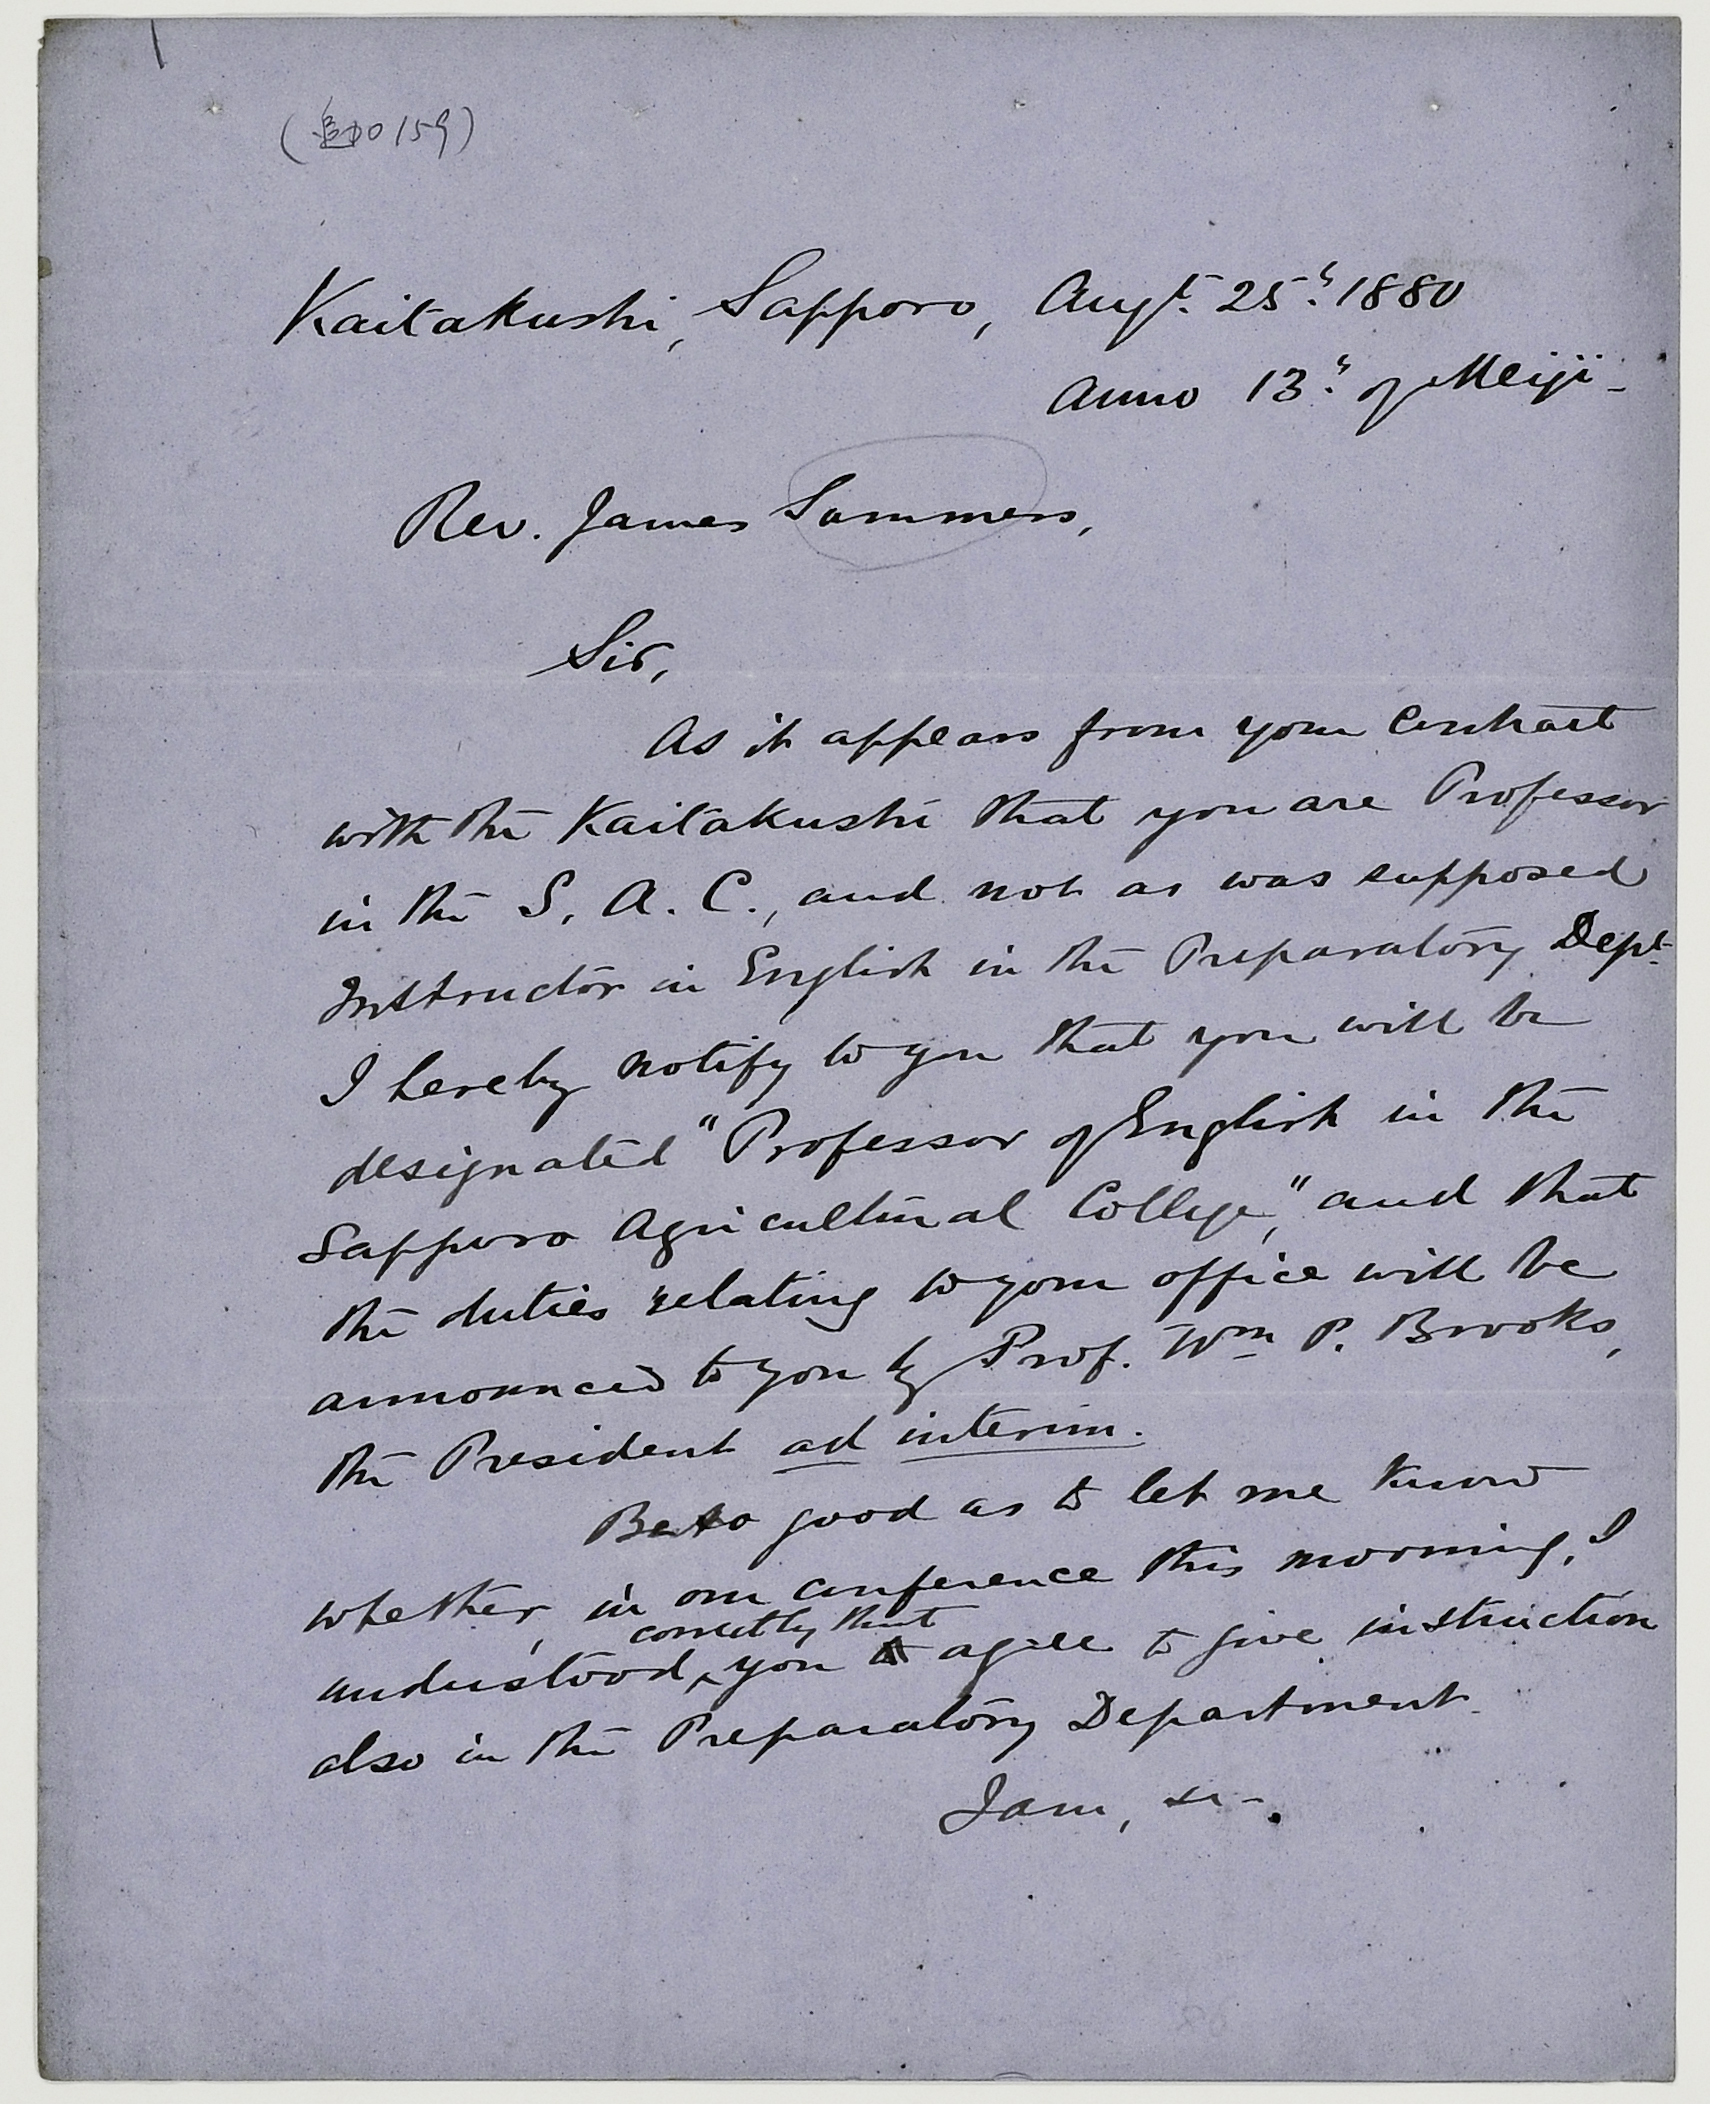 (追加0159)
Kaitakushi, Sapporo, Augt. 25th 1880
Anno 13th of Meiji-
Rev. James Summers,
Sir,
As it appears from your Contract
with the Kaitakushi that you are Professor
in the S. A. C., and not as was supposed
Instructor in English in the Preparatory Dept.
I hereby notify to you that you will be
designated "Professor of English in the
Sapporo Agricultural College," and that
the duties relating to your office will be
announced to you by Prof. Wm P. Brooks,
the President ad interim.
Be so good as to let me know
whether, in our conference this morning, I
correctly that
understood, you agree to give instruction
also in the Preparatory Department.
I am, &c-.